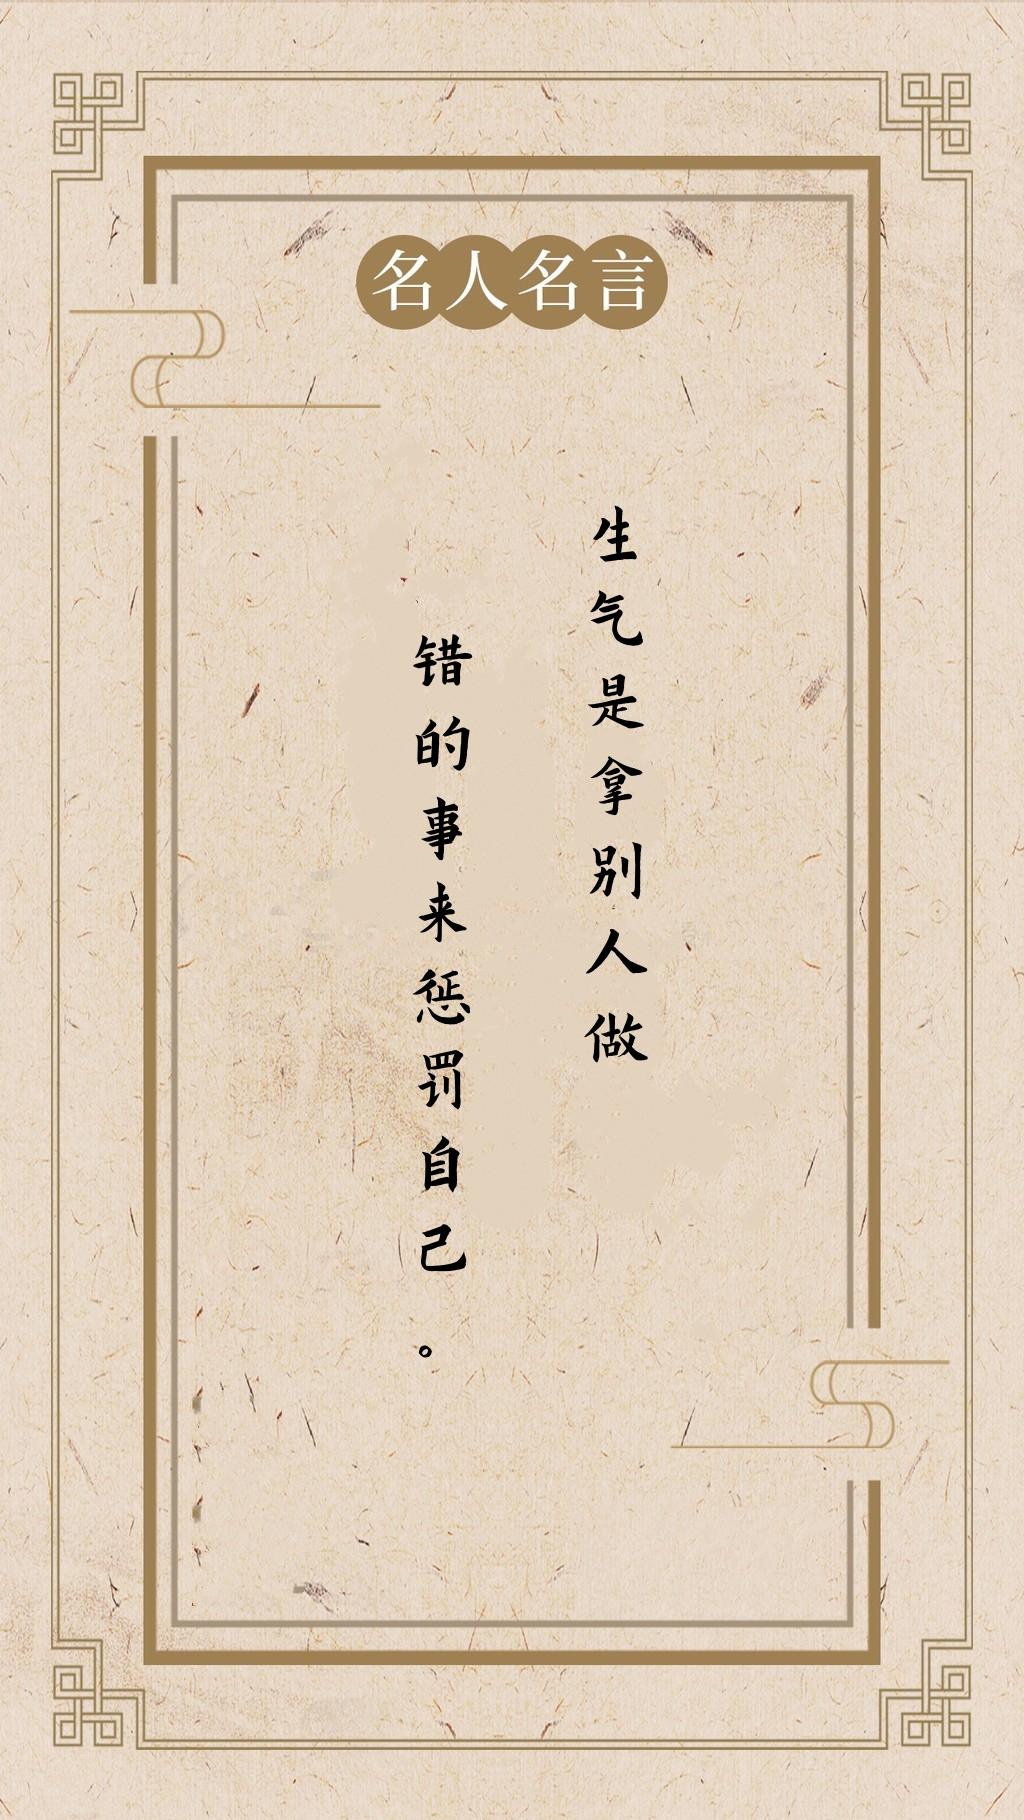 名人名言
生气是拿别人做
错的事来惩罚自己。